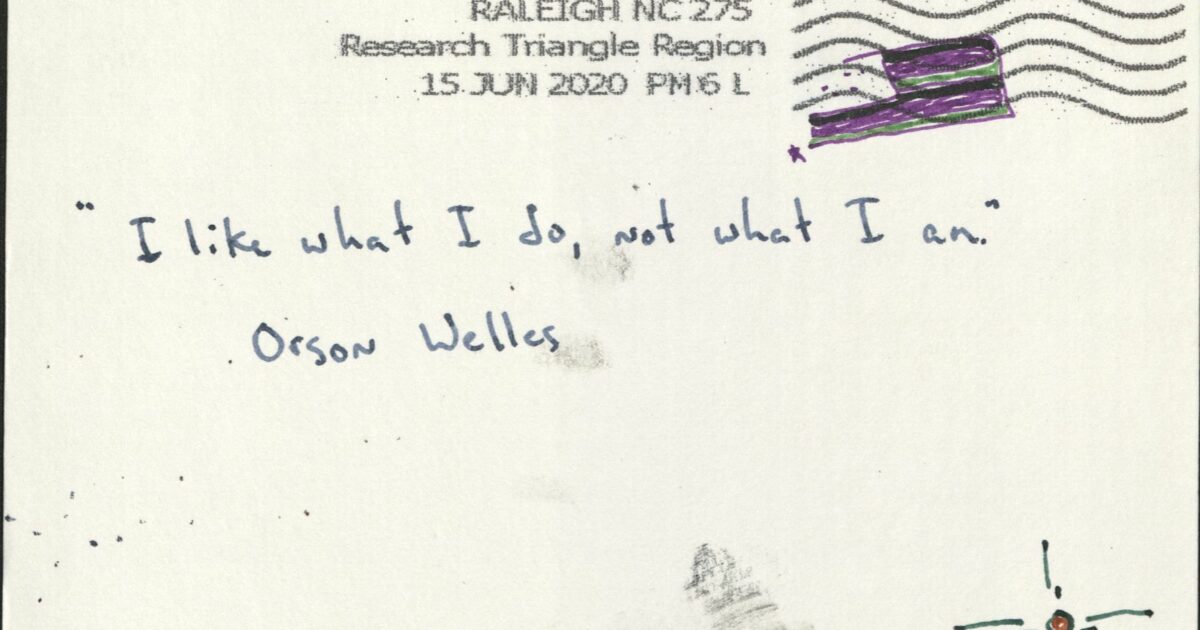 RALEIGH NC 275
Research Triangle Region
15 JUN 2020 PM 6 L
"I like what I do, not what I am."
Orson Welles